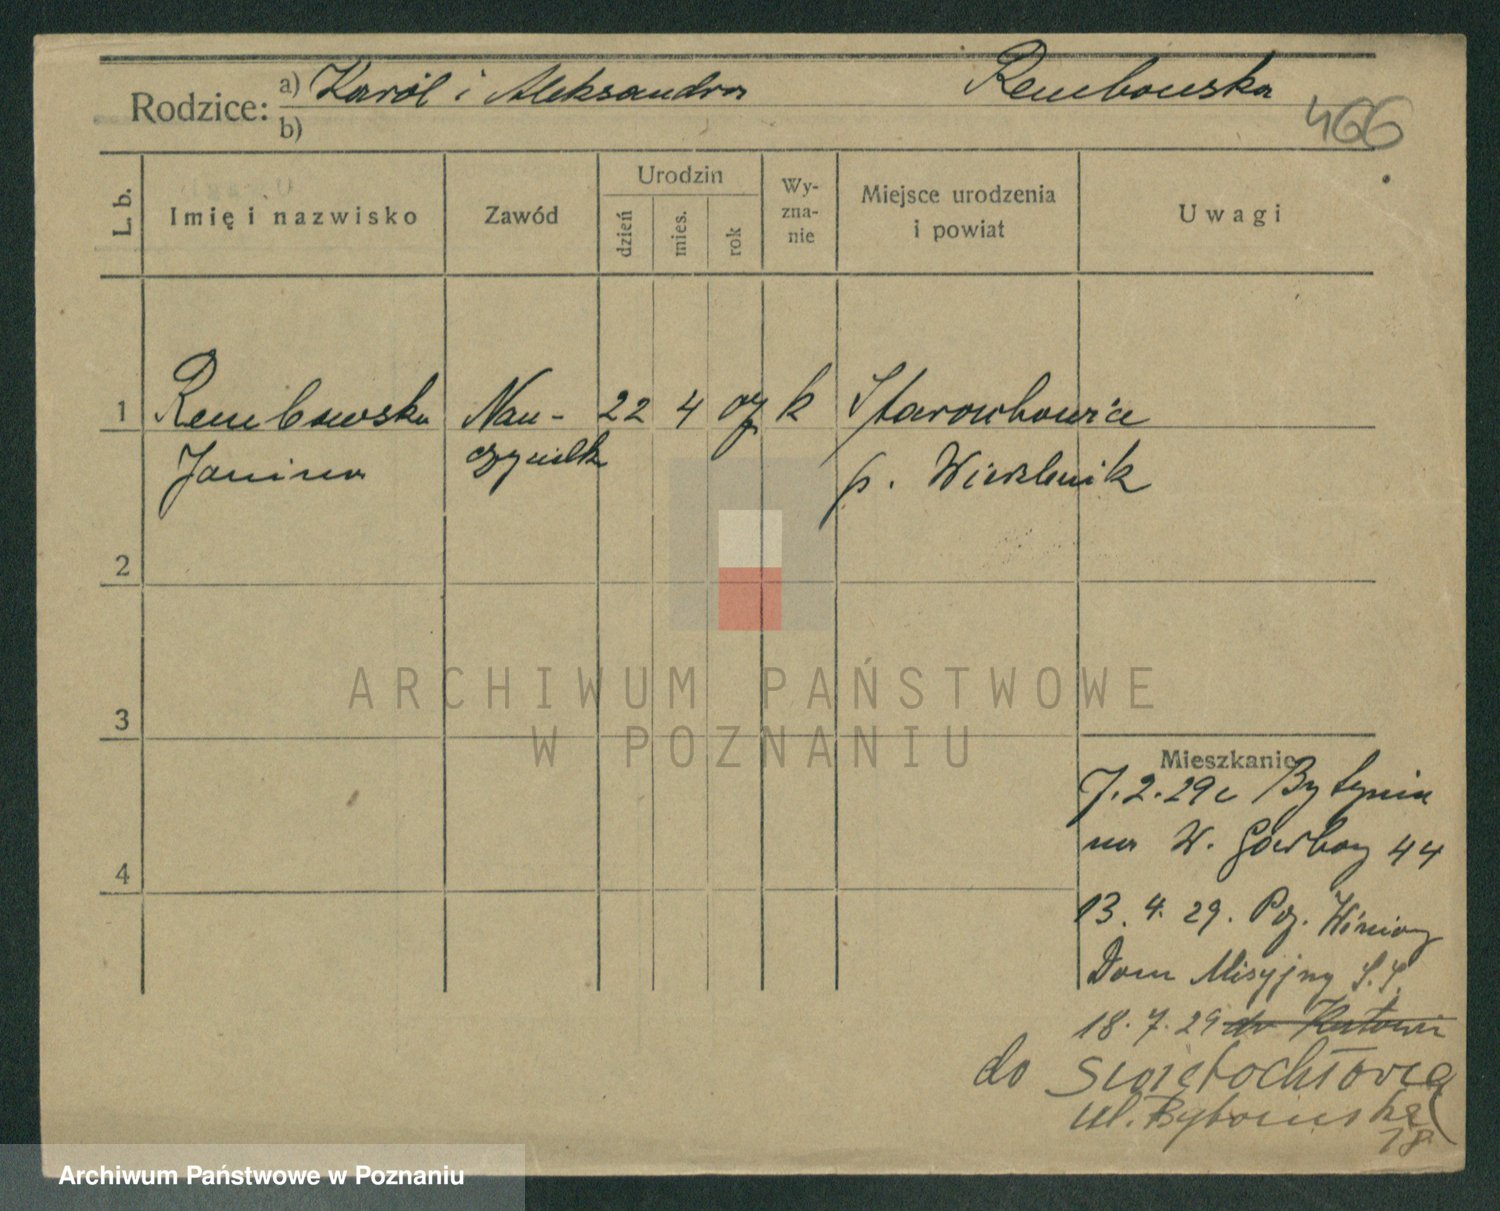 Rodzice: a) Karol i Aleksandra Rembowska
b)
466
L. b.
Imię i nazwisko
Zawód
Urodzin
dzień
mies.
rok
Wy-
zna-
nie
Miejsce urodzenia
i powiat
Uwagi
1 Rembowska Nau- 22 4 07 k Starachowice
Janina czycielk p. Wierzbnik
2
3
4
Mieszkanie
7.2.29 z Bytynia
na W. Garbary 44
13.4.29. Poz. Winiary
Dom Misyjny S.S.
18.7.29 do Katowic
do Świętochłowic
ul. Bytomska
18
ARCHIWUM PAŃSTWOWE
W POZNANIU
Archiwum Państwowe w Poznaniu